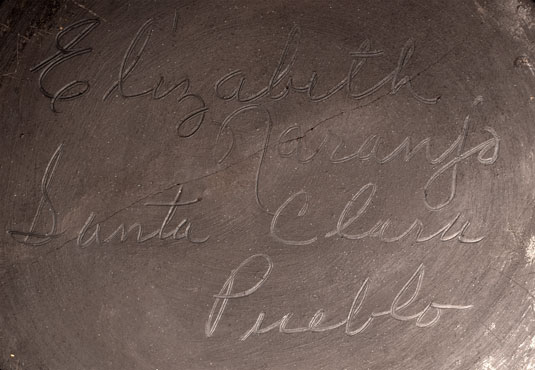 Elizabeth
Naranjo
Santa Clara
Pueblo